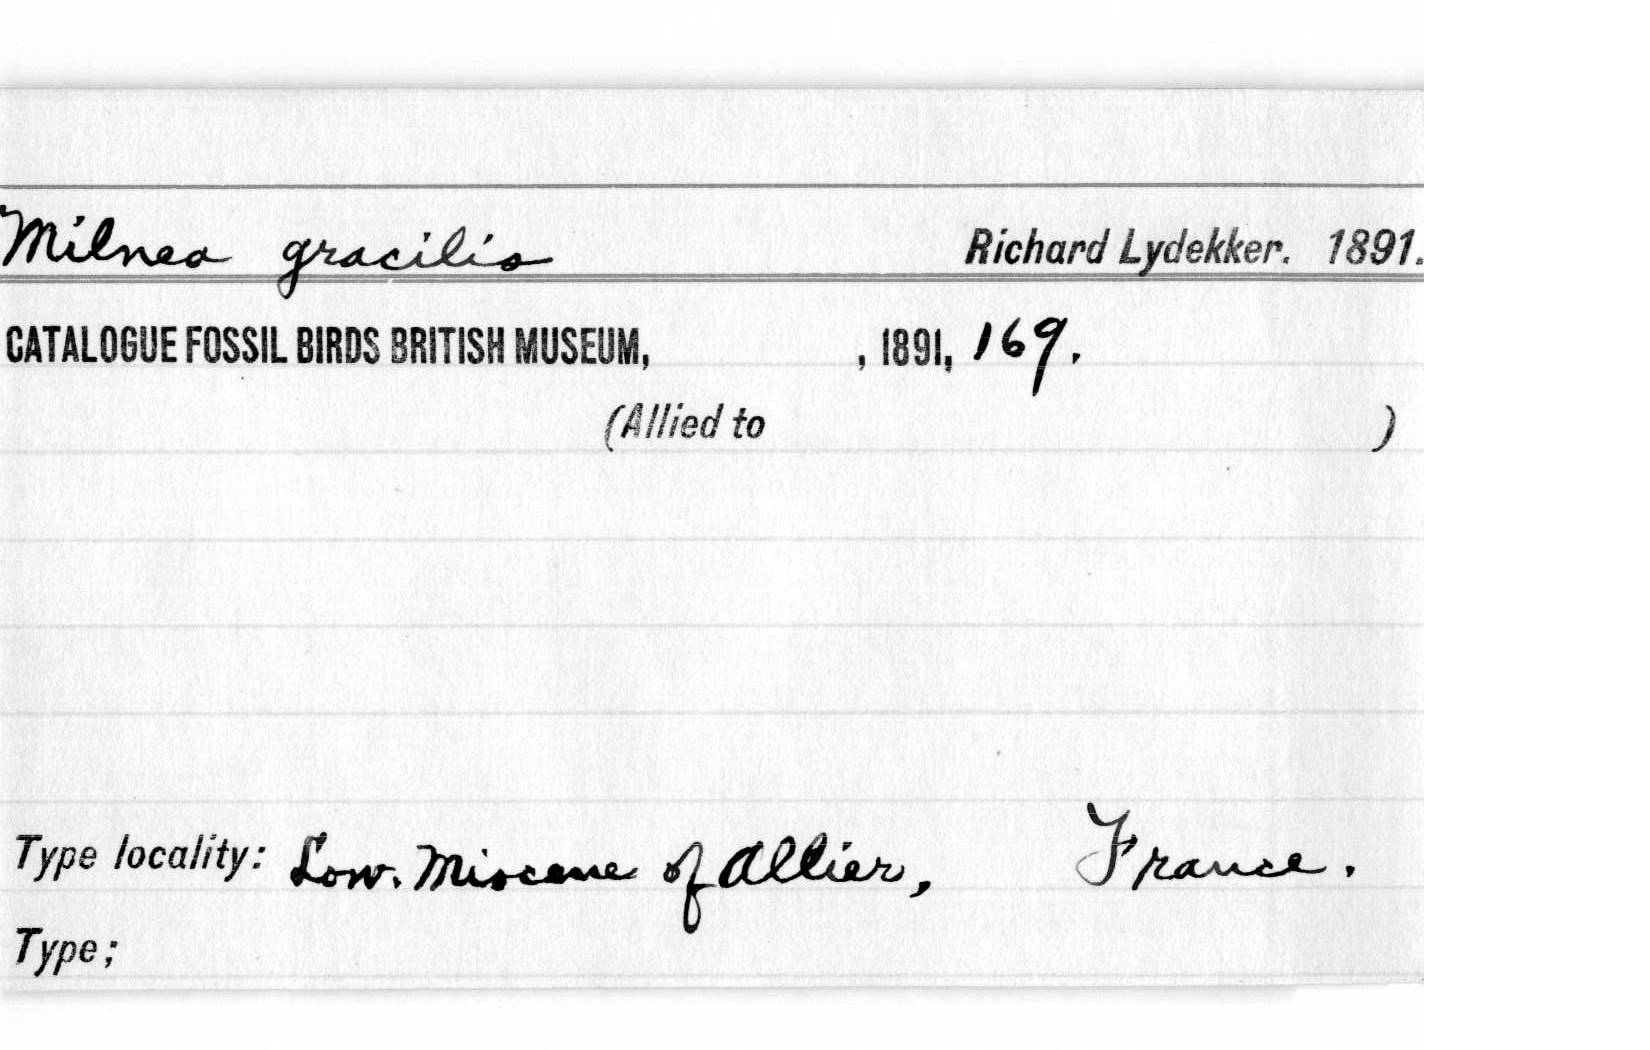 Milnea gracilis Richard Lydekker. 1891.
CATALOGUE FOSSIL BIRDS BRITISH MUSEUM, , 1891, 169.
(Allied to )
Type locality: Low. Miocene of Allier, France.
Type;